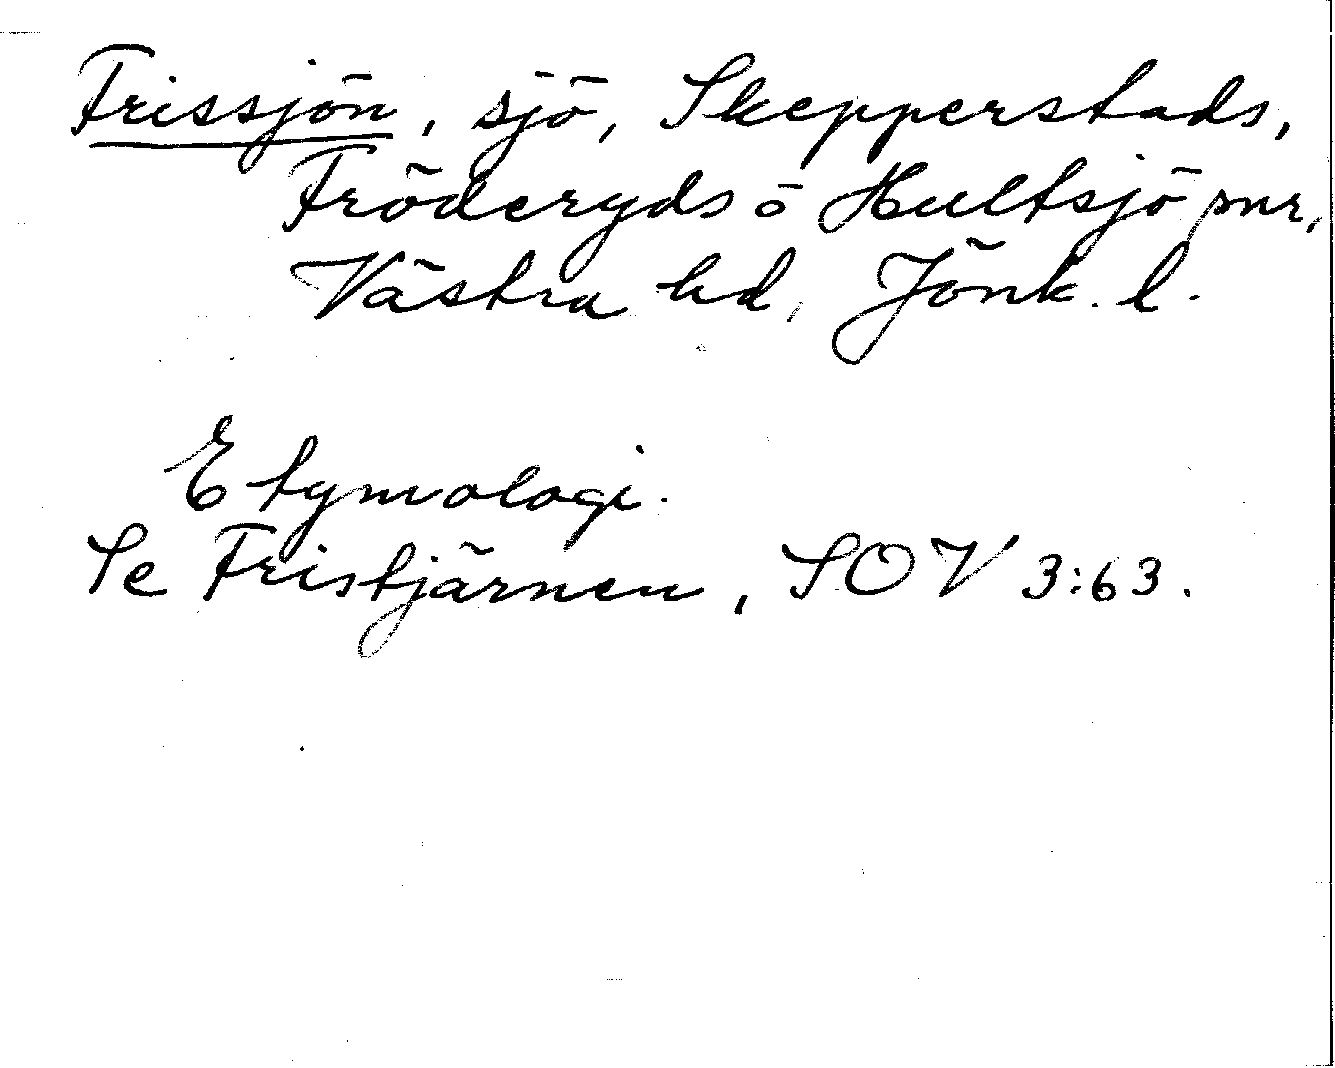 Frissjön, sjö, Skepperstads,
Fröderyds o Hultsjö snr,
Västra hd, Jönk. l.
Etymologi.
Se Fristjärnen, SOV 3:63.